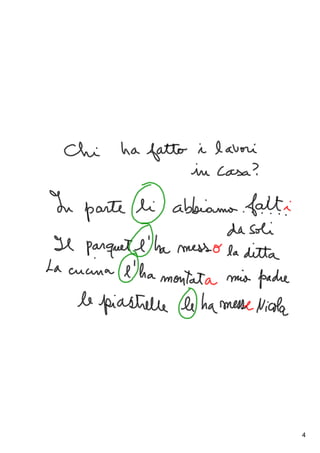 Chi ha fatto i lavori
in casa?
In parte li abbiamo fatti
da soli
Il parquet l'ha messo la ditta
La cucina l'ha montata mio padre
le piastrelle le ha messe Nicola
4